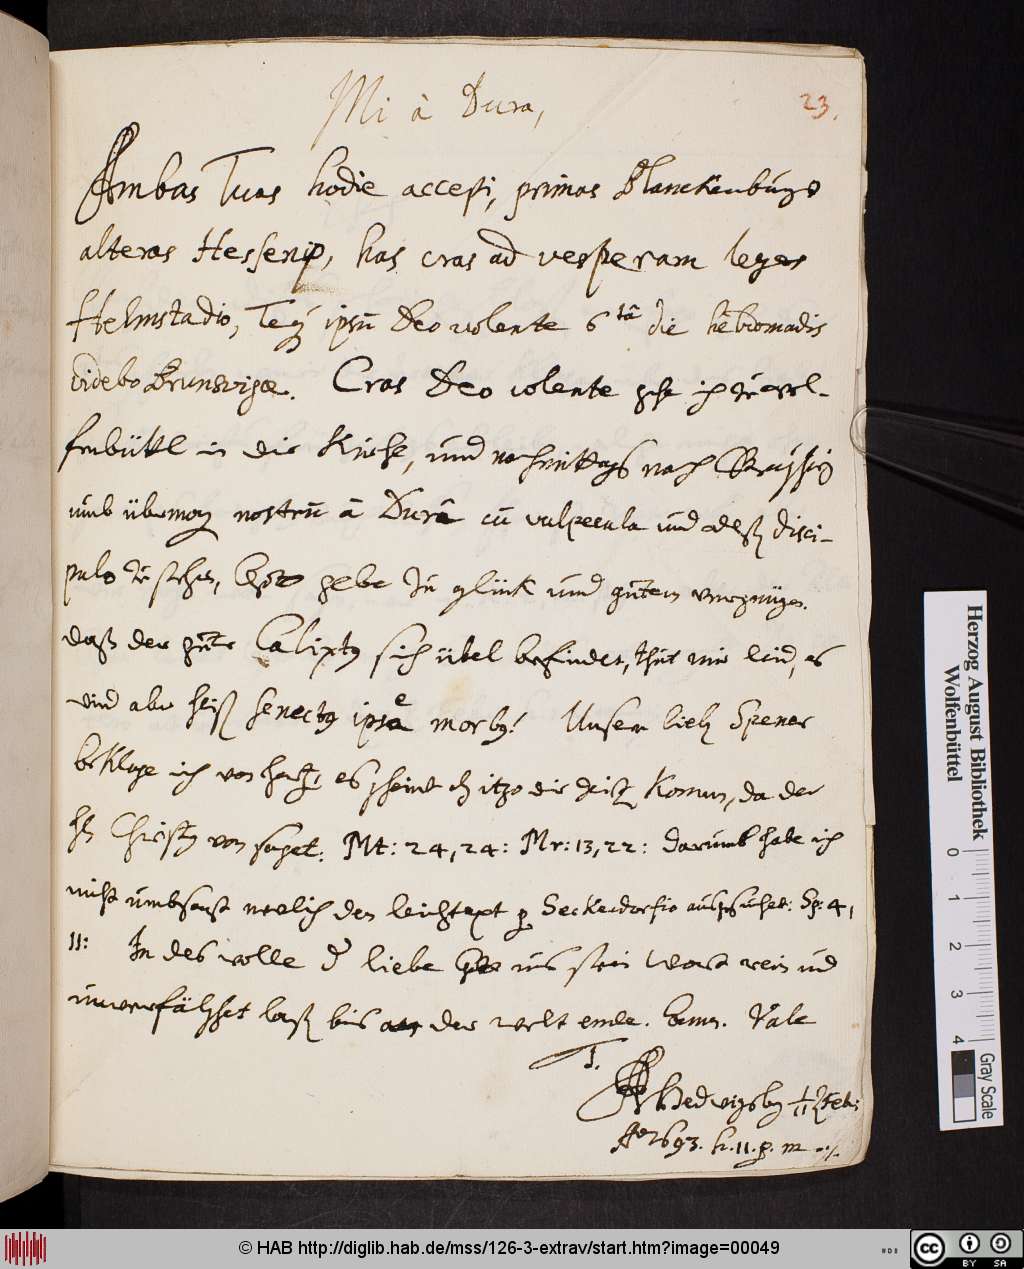 Mi à Dura,
23.
Ambas Tuas hodie accepi, primas Blanckenburgo
alteras Hessenio, has cras ad vesperam leges
Helmstadio, Teq; ipsū Deo volente 6tâ die hebdomadis
videbo Brunsvigæ. Cras Deo volente gehe ich zu Wol-
fenbüttl in die Kirche, und nachmittags nach
umb übermorg nostrū à Durâ cū vulpecula und deß disci-
pulo zu sehen, Gott gebe zu glück und gutem vergnügen.
daß der gute Calixtus sich übel befindet, thut mir leid, es
wird aber heiß senectus ipsa e morbus! Unsern lieb Spener
beklage ich von hertz, es scheint dz itzo die Zeit komm, da der
H Christus von saget: Mt: 24, 24: Mr: 13, 22: darumb habe ich
nicht umbsonst neulich den leichtext p Seckendorfio außgesuchet: Sp: 4,
11: In des wolle d liebe Gott uns sein Wort rein und
unverfälschet laß bis an der welt ende. Amen. Vale
T.
Hedwigsb Feb:
Ao 1693. h. 11. p. m
Herzog August Bibliothek
Wolfenbüttel
0 1 2 3 4
Gray Scale
© HAB http://diglib.hab.de/mss/126-3-extrav/start.htm?image=00049
cc BY SA